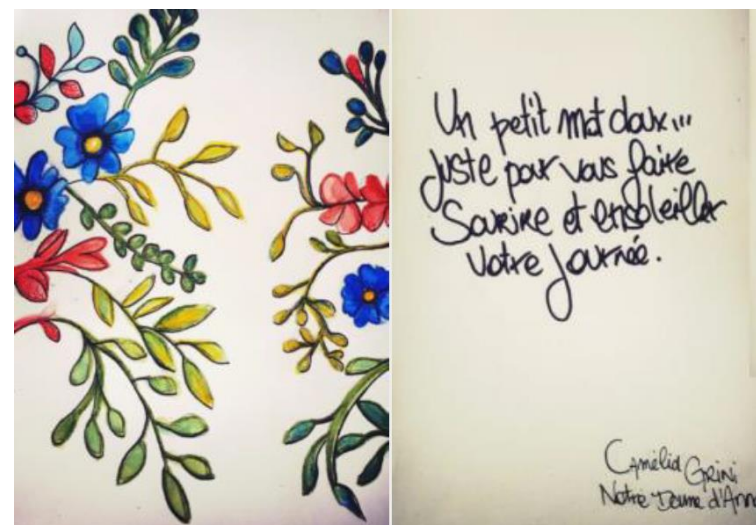 Un petit mot doux...
Juste pour vous faire
Sourire et ensoleiller
Votre journée.
Camélia Grini
Notre Dame d'Ann